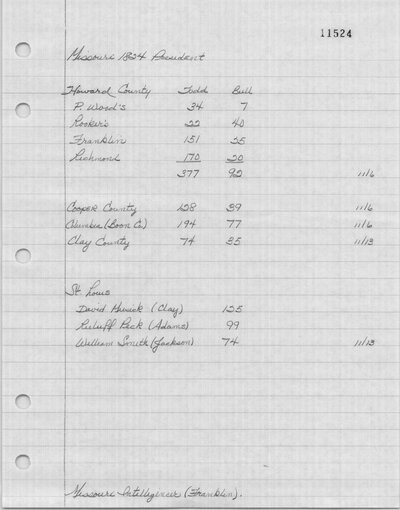 11524
Missouri 1824 President
Howard County Todd Bull
P. Wood's 34 7
Rooker's 22 40
Franklin 151 25
Richmond 170 20
377 92 11/6
Cooper County 128 39 11/6
Columbia (Boon Co.) 194 77 11/6
Clay County 74 35 11/13
St. Louis
David Musick (Clay) 125
Ruluff Peck (Adams) 99
William Smith (Jackson) 74 11/13
Missouri Intelligencer (Franklin).